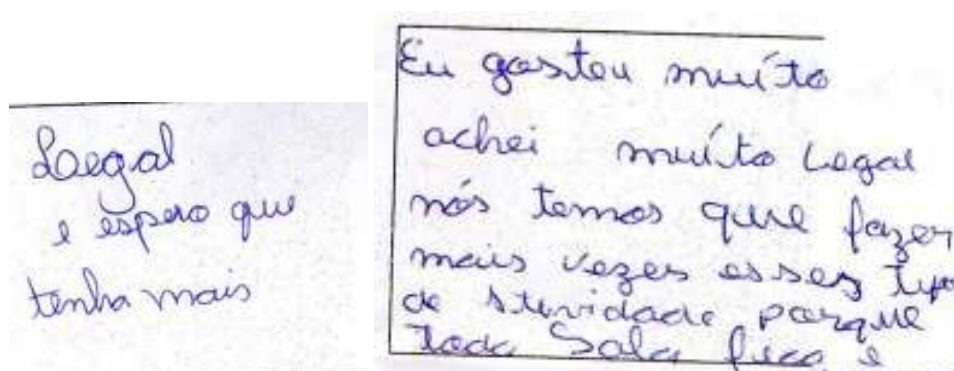 Legal
e espero que
tenha mais
Eu gostou muíto
achei muíto Legal
nós temos que fazer
mais vezes esses tipo
de atividade porque
toda Sala fica e